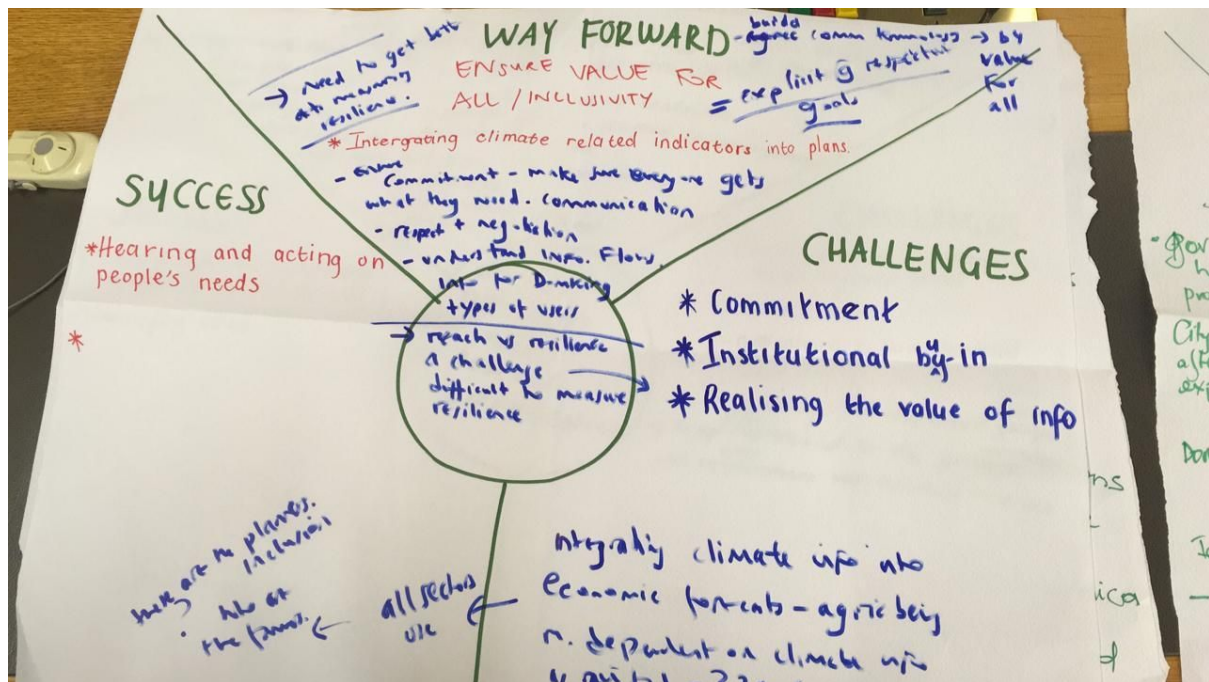 WAY FORWARD
- builds
agree comm → by
value
for
all
→ need to get bett
at measuring
resilience.
ENSURE VALUE FOR
ALL / INCLUSIVITY
= explicit respective
goals
* Intergrating climate related indicators into plans.
- ensure
Commitment - make sure everyone gets
what they need. communication
- respect + negotiation
- understand info. Flows.
info for D-making
types of users
→ reach vs resilience
a challenge
difficult to measure
resilience
SUCCESS
*Hearing and acting on
people's needs
*
CHALLENGES
* Commitment
* Institutional buy-in
* Realising the value of info
Integrating climate info into
economic forecasts - agric being
m. dependent on climate info
all sectors
use
planners.
inclusion
who are
the
Gov
City
Don
ns
ica
d